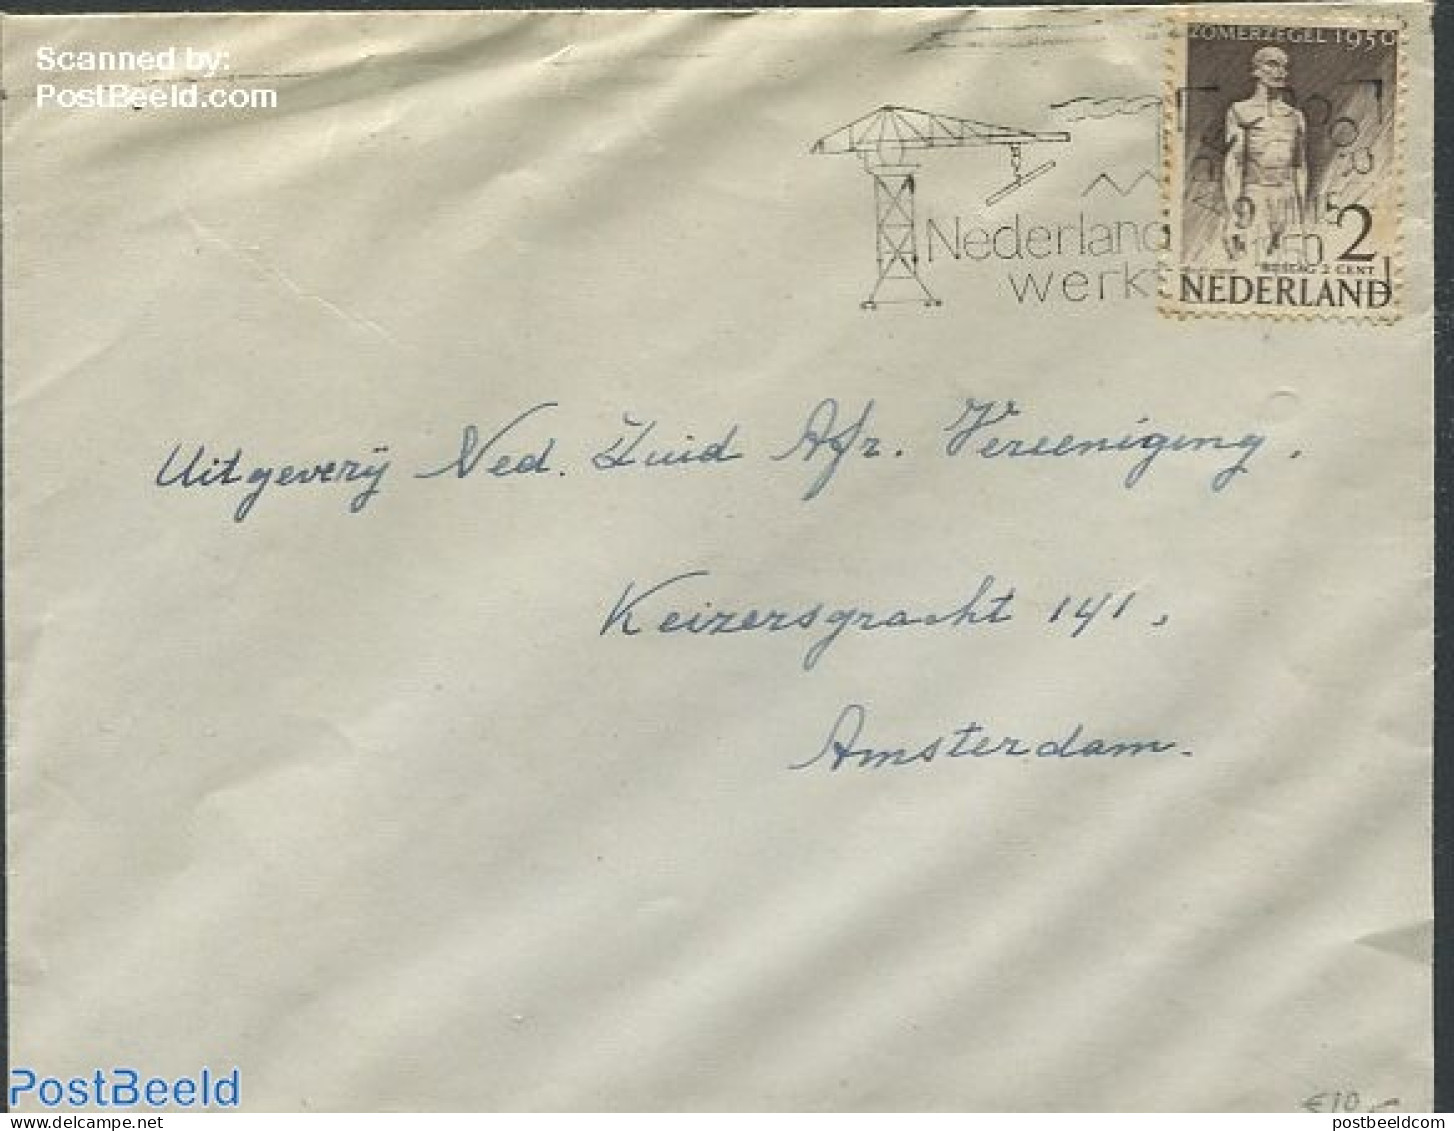 Scanned by:
PostBeeld.com
ZOMERZEGEL 1950
Nederland
werkt
9 VIII 15
1950
2
BIJSLAG 2 CENT
NEDERLAND
Uitgeverij Ned. Zuid Afr. Vereeniging.
Keizersgracht 141,
Amsterdam.
PostBeeld
€10,-
postbeeldcom